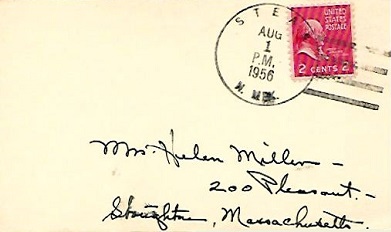 STE
AUG
1
P.M.
1956
N. MEX.
UNITED
STATES
POSTAGE
2 CENTS 2
Mrs. Helen Miller –
200 Pleasant. –
Stoughton, Massachusetts.